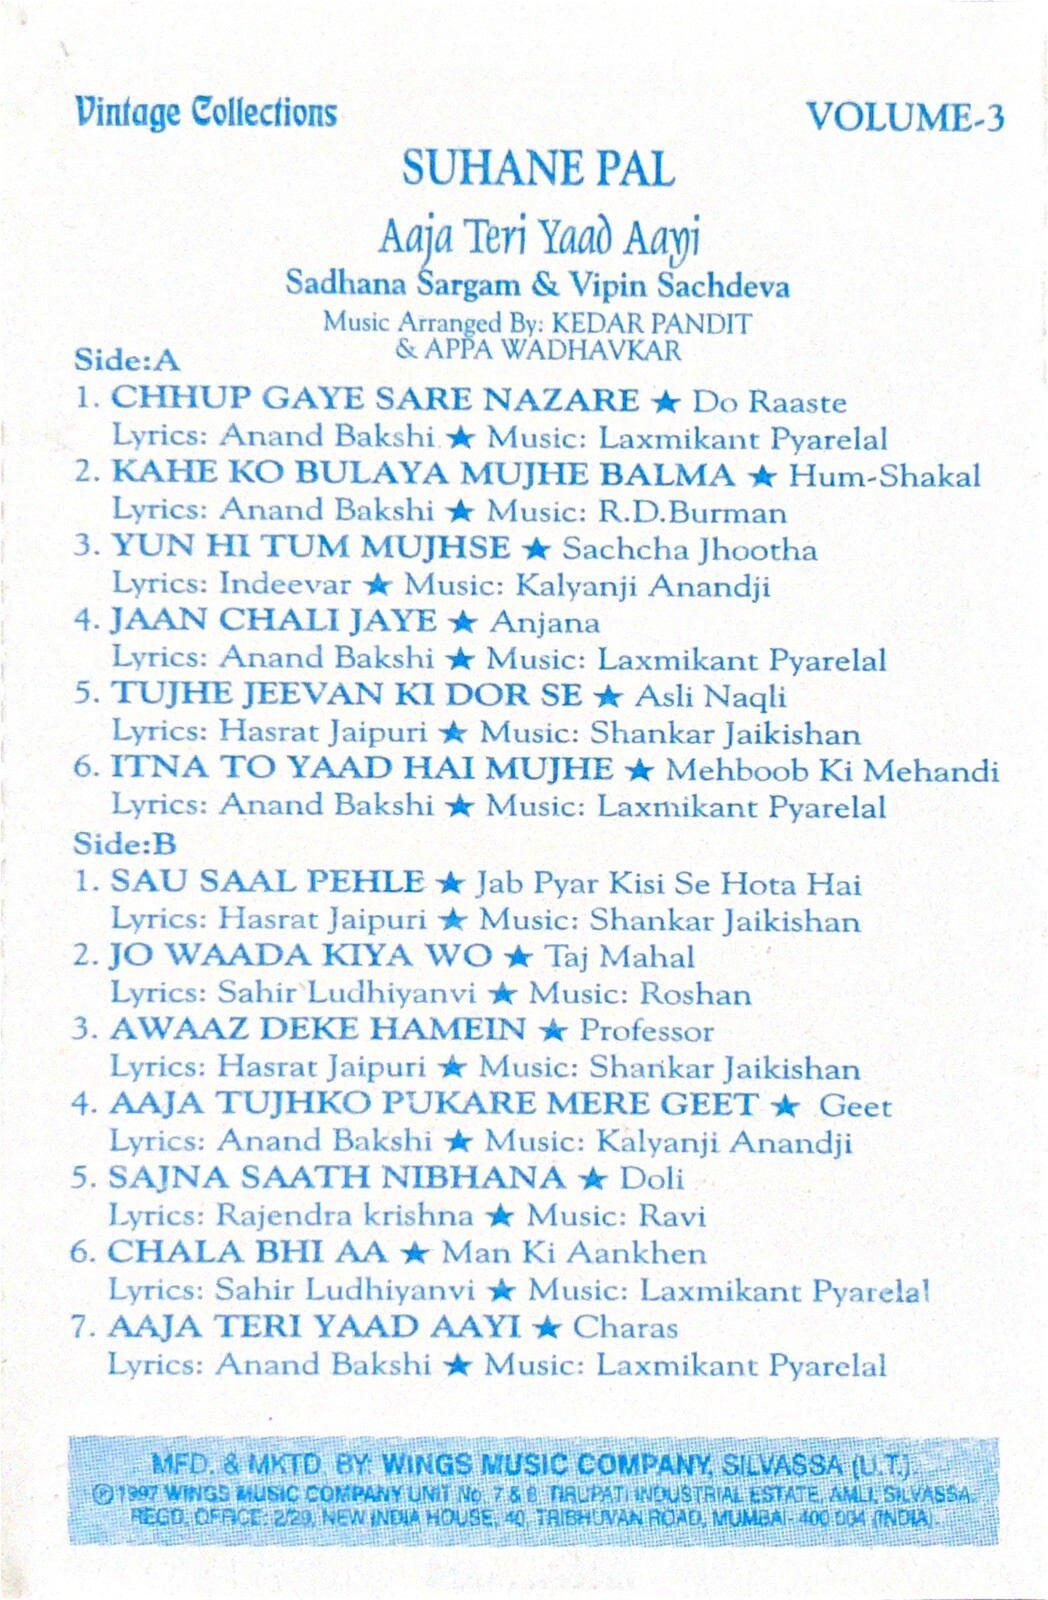 Vintage Collections VOLUME-3
SUHANE PAL
Aaja Teri Yaad Aayi
Sadhana Sargam & Vipin Sachdeva
Music Arranged By: KEDAR PANDIT
& APPA WADHAVKAR
Side:A
1. CHHUP GAYE SARE NAZARE ★ Do Raaste
Lyrics: Anand Bakshi ★ Music: Laxmikant Pyarelal
2. KAHE KO BULAYA MUJHE BALMA ★ Hum-Shakal
Lyrics: Anand Bakshi ★ Music: R.D.Burman
3. YUN HI TUM MUJHSE ★ Sachcha Jhootha
Lyrics: Indeevar ★ Music: Kalyanji Anandji
4. JAAN CHALI JAYE ★ Anjana
Lyrics: Anand Bakshi ★ Music: Laxmikant Pyarelal
5. TUJHE JEEVAN KI DOR SE ★ Asli Naqli
Lyrics: Hasrat Jaipuri ★ Music: Shankar Jaikishan
6. ITNA TO YAAD HAI MUJHE ★ Mehboob Ki Mehandi
Lyrics: Anand Bakshi ★ Music: Laxmikant Pyarelal
Side:B
1. SAU SAAL PEHLE ★ Jab Pyar Kisi Se Hota Hai
Lyrics: Hasrat Jaipuri ★ Music: Shankar Jaikishan
2. JO WAADA KIYA WO ★ Taj Mahal
Lyrics: Sahir Ludhiyanvi ★ Music: Roshan
3. AWAAZ DEKE HAMEIN ★ Professor
Lyrics: Hasrat Jaipuri ★ Music: Shankar Jaikishan
4. AAJA TUJHKO PUKARE MERE GEET ★ Geet
Lyrics: Anand Bakshi ★ Music: Kalyanji Anandji
5. SAJNA SAATH NIBHANA ★ Doli
Lyrics: Rajendra krishna ★ Music: Ravi
6. CHALA BHI AA ★ Man Ki Aankhen
Lyrics: Sahir Ludhiyanvi ★ Music: Laxmikant Pyarelal
7. AAJA TERI YAAD AAYI ★ Charas
Lyrics: Anand Bakshi ★ Music: Laxmikant Pyarelal
MFD. & MKTD. BY: WINGS MUSIC COMPANY, SILVASSA (U.T.).
℗ 1997 WINGS MUSIC COMPANY UNIT No. 7 & 8 TIRUPATI INDUSTRIAL ESTATE, AMLI, SILVASSA.
REGD. OFFICE: 2/29, NEW INDIA HOUSE, 40, TRIBHUVAN ROAD, MUMBAI- 400 004 (INDIA).